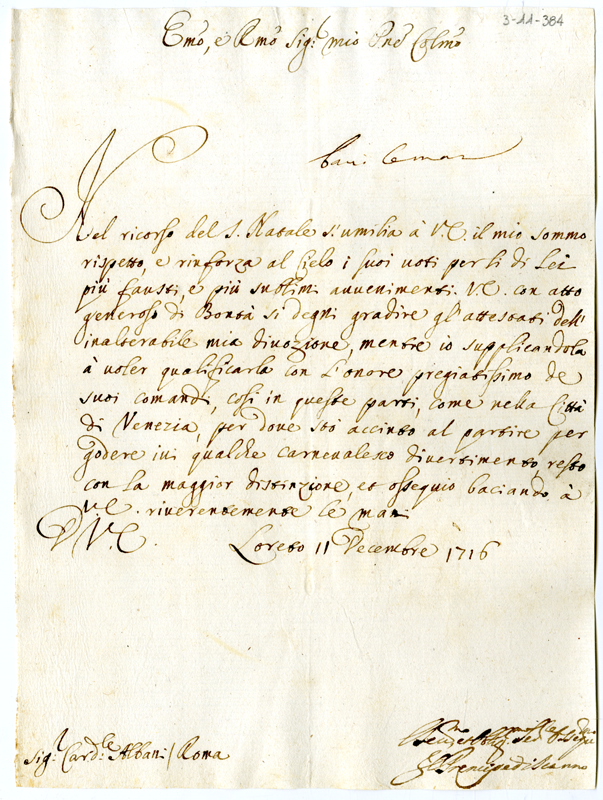 3-11-384
Emo, e Rmo Sig.r mio Pne Colmo
Nel ricorso del S. Natale s'umilia à V.E. il mio sommo
rispetto, e rinforza al Cielo i suoi voti per li di Lei
più fausti, e più sublimi auuenimenti. V.E. con atto
generoso di Bontà si degni gradire gl'attestati dell'
inalterabile mia diuozione, mentre io supplicandola
à uoler qualificarla con l'onore pregiatissimo de
suoi comandi, così in queste parti, come nella Città
di Venezia, per doue stò accinto al partire per
godere iui qualche carneualesco diuertimento, resto
con la maggior distinzione, et ossequio baciando à
V.E. riuerentemente le mani
D V.E. Loreto 11 Decembre 1716
Sig.r Card.le Albani / Roma
Il Prencipe di